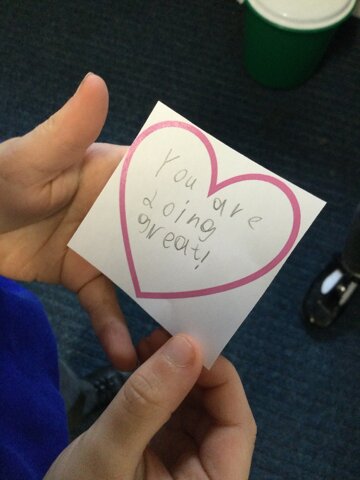 You are
doing
great!